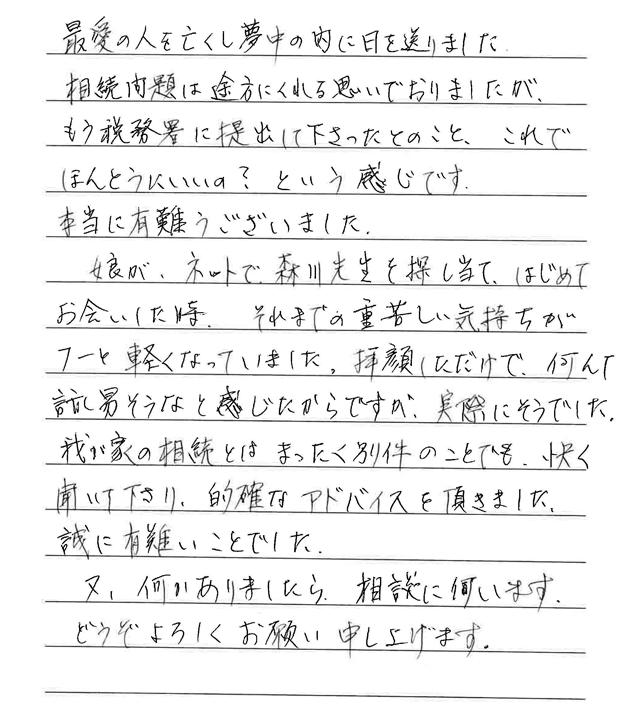 最愛の人を亡くし夢中の内に日を送りました.
相続問題は途方にくれる思いでおりましたが、
もう税務署に提出して下さったとのこと、これで
ほんとうにいいの？という感じです.
本当に有難うございました.
娘が、ネットで森川先生を探し当て、はじめて
お会いした時、それまでの重苦しい気持ちが
フーと軽くなっていました。拝顔しただけで、何んて
話し易そうなと感じたからですが、実際にそうでした.
我が家の相続とはまったく別件のことでも、快く
聞いて下さり、的確なアドバイスを頂きました.
誠に有難いことでした.
又、何かありましたら、相談に伺います.
どうぞよろしくお願い申し上げます。